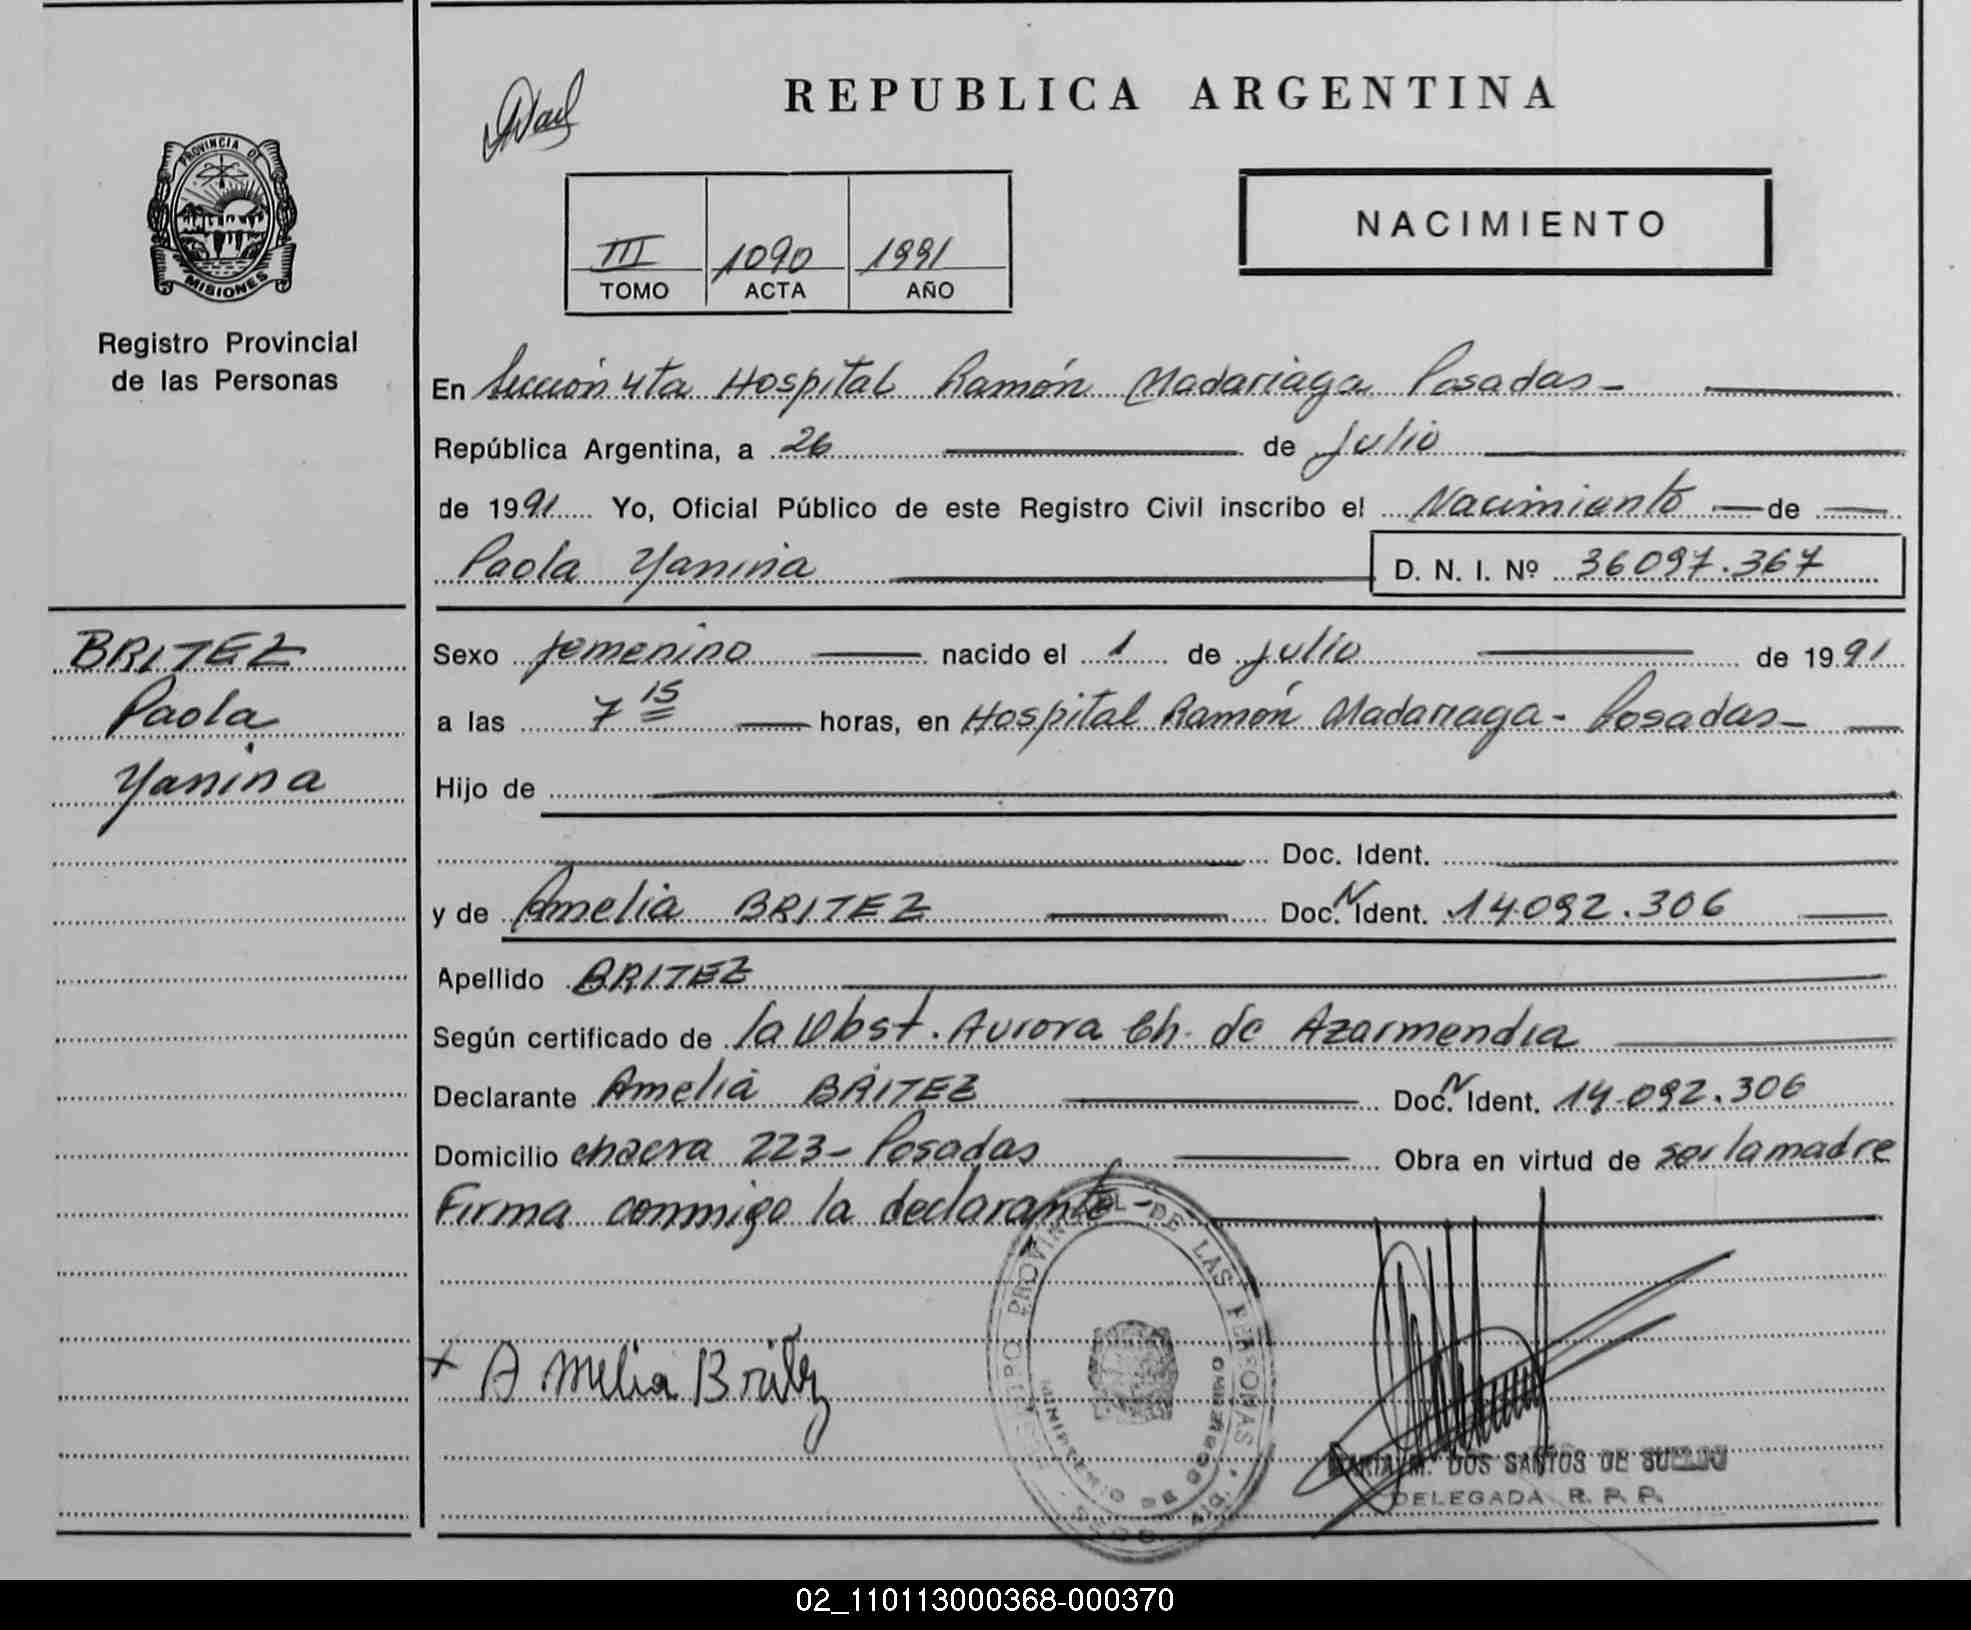 REPUBLICA ARGENTINA
PROVINCIA DE
MISIONES
Registro Provincial
de las Personas
III 1090 1991
TOMO ACTA AÑO
NACIMIENTO
En Sección 4ta Hospital Ramón Madariaga Posadas-
República Argentina, a 26 de Julio
de 1991 Yo, Oficial Público de este Registro Civil inscribo el Nacimiento de
Paola Yanina D. N. I. Nº 36097.367
BRITEZ
Paola
Yanina
Sexo femenino nacido el 1 de julio de 1991
a las 7 15 horas, en Hospital Ramón Madariaga- Posadas-
Hijo de
Doc. Ident.
y de Amelia BRITEZ Doc. N Ident. 14.092.306
Apellido BRITEZ
Según certificado de la Obst. Aurora Ch. de Azarmendia
Declarante Amelia BRITEZ Doc. N Ident. 14.092.306
Domicilio chacra 223- Posadas Obra en virtud de ser la madre
Firma conmigo la declarante-
PROVINCIAL DE LAS PERSONAS
MINISTERIO DE GOBIERNO
x Amelia Britez
MARIA M. DOS SANTOS DE
DELEGADA R. P. P.
02_110113000368-000370